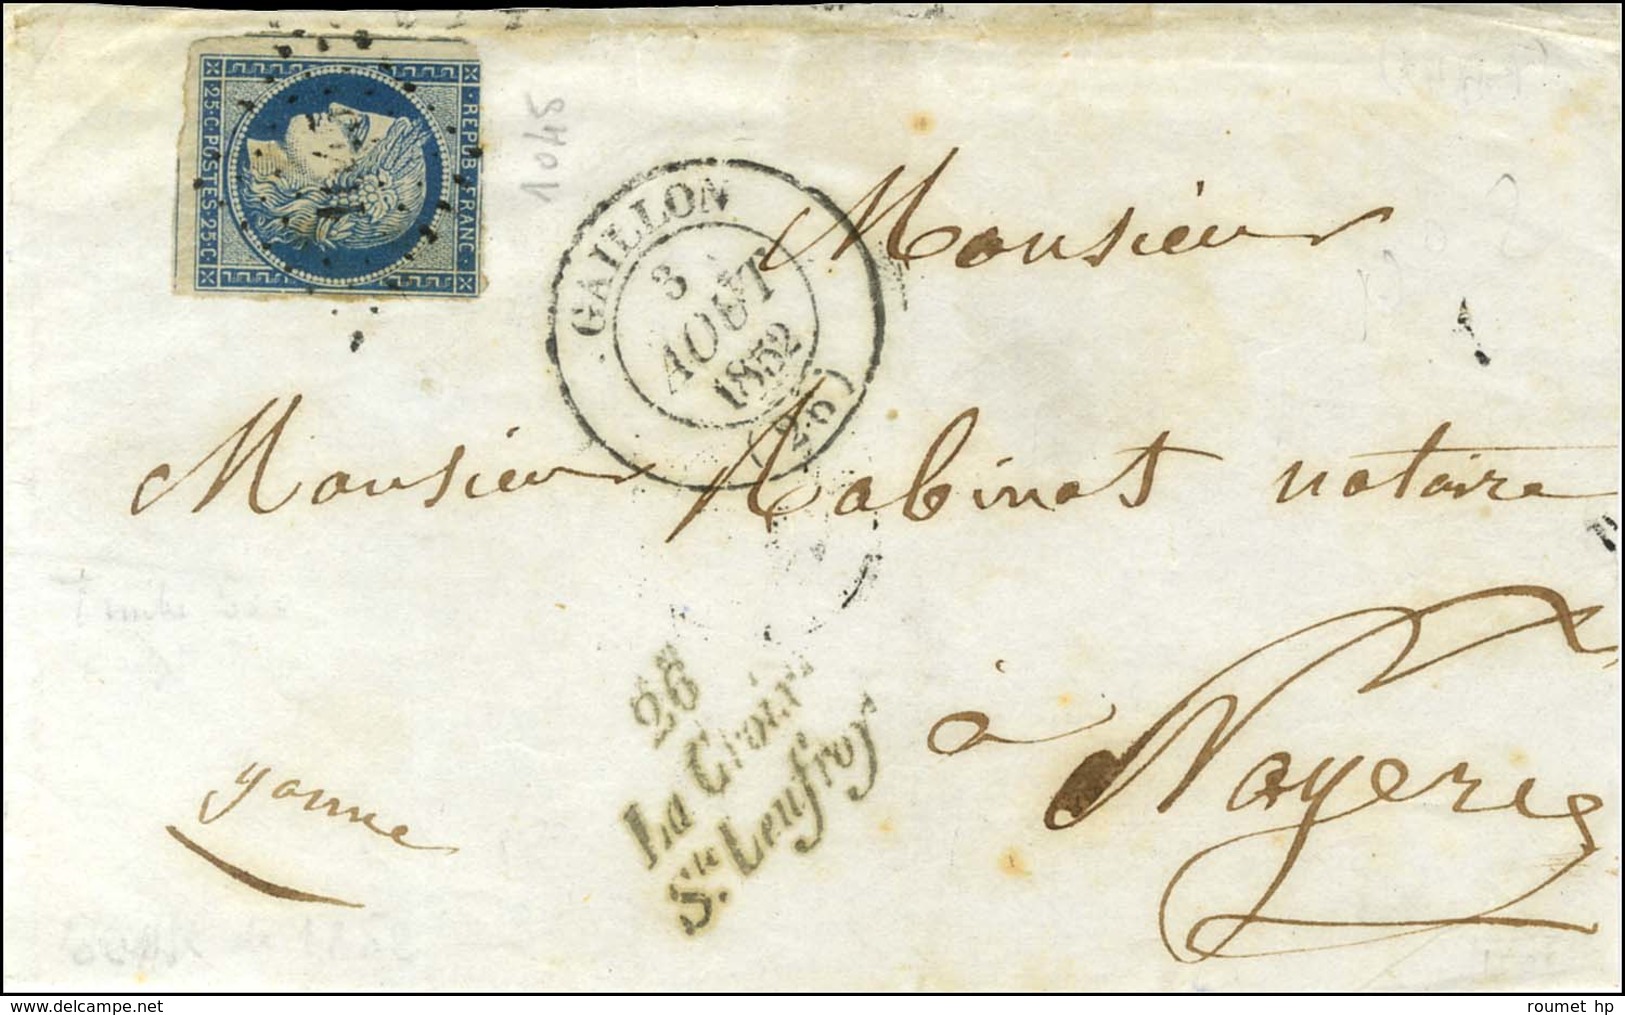 REPUB·FRANC·
25·C·POSTES·25·C
1045
GAILLON
3
AOUT
1852
(26)
Monsieur
Monsieur Rabinot notaire
à Noyers
yonne
26
La Croix
St. Leufroy
roumet hp